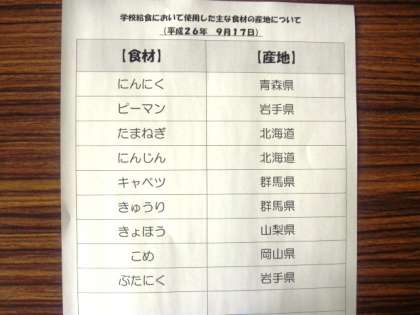 学校給食において使用した主な食材の産地について
（平成26年 9月17日）
【食材】 【産地】
にんにく 青森県
ピーマン 岩手県
たまねぎ 北海道
にんじん 北海道
キャベツ 群馬県
きゅうり 群馬県
きょほう 山梨県
こめ 岡山県
ぶたにく 岩手県